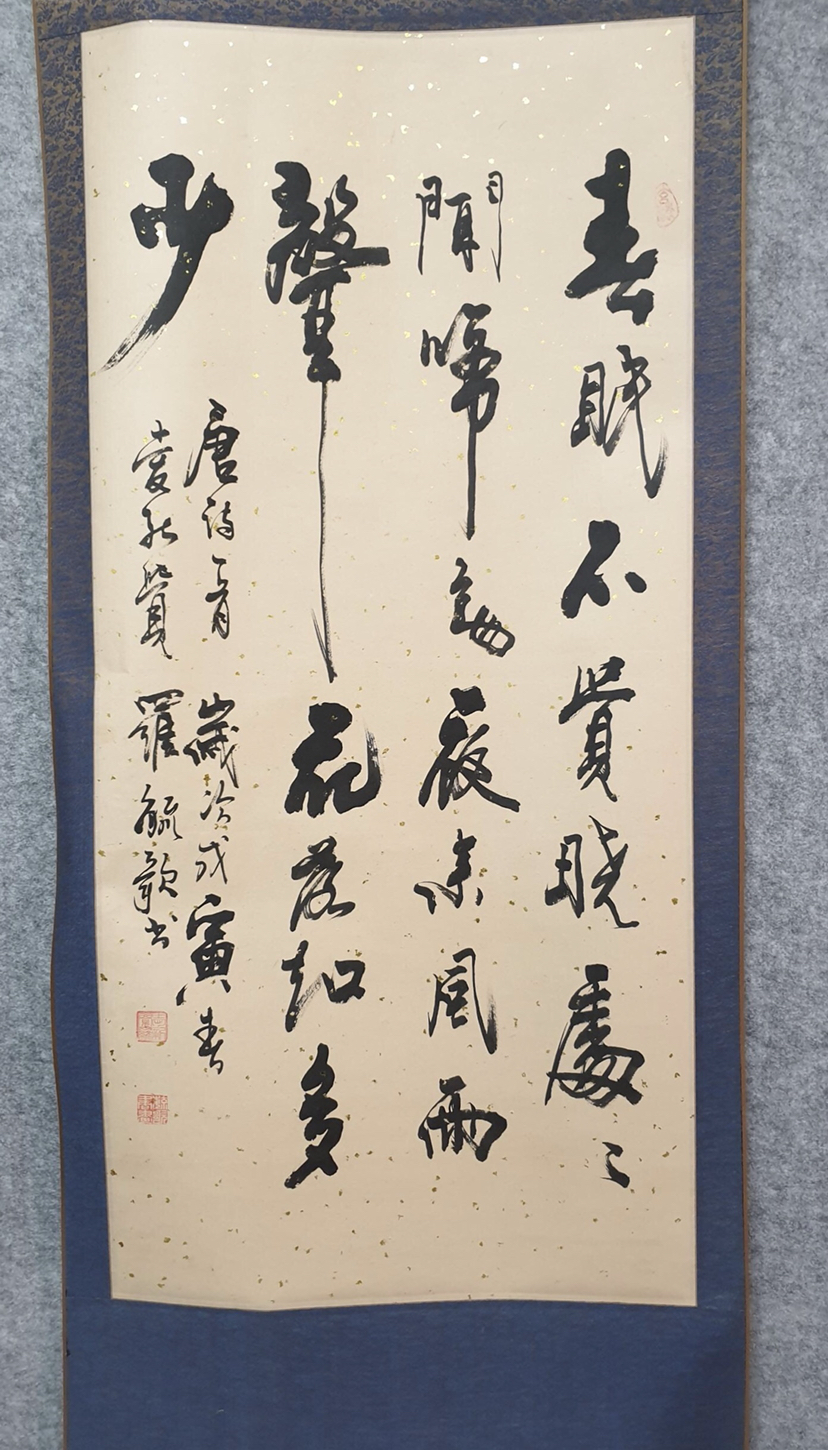 春眠不覺曉處〻
聞啼鳥夜来風雨
聲花落知多
少
唐詩一首 歲次戊寅春
愛新覺羅毓書